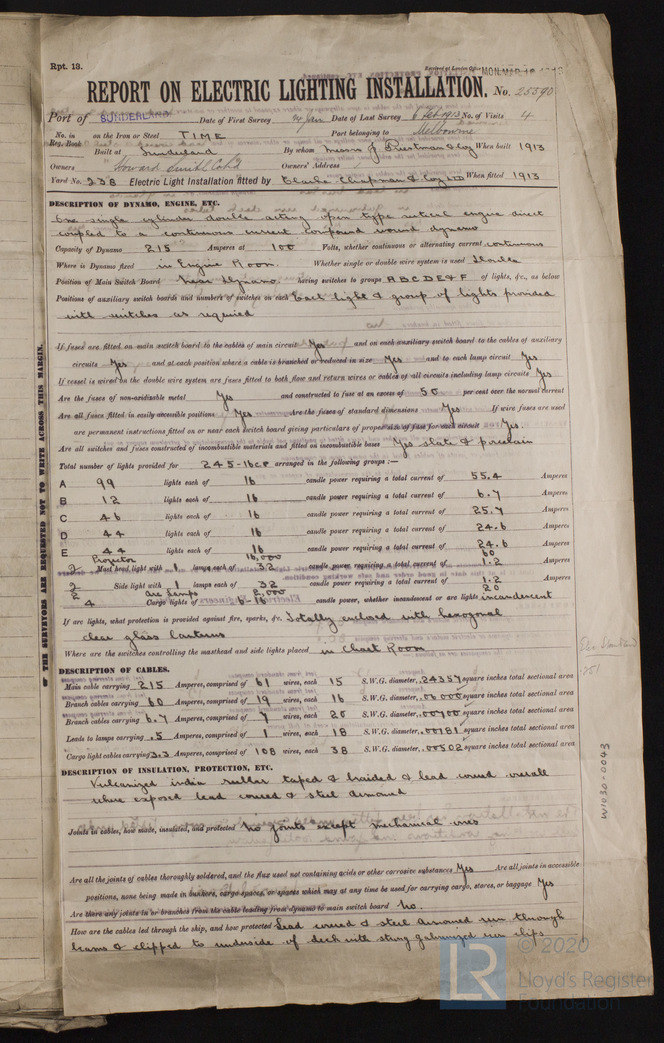 Rpt. 13.
Received at London Office MON. MAR. 10 1913
REPORT ON ELECTRIC LIGHTING INSTALLATION. No. 25590
Port of SUNDERLAND Date of First Survey Date of Last Survey 6 Feb 1913 No. of Visits 4
No. in Reg. Book on the Iron or Steel TIME Part belonging to Melbourne
Built at Sunderland By whom Messrs J. Priestman & Coy When built 1913
Owners Howard Smith Co Ltd Owners' Address
Yard No. 238 Electric Light Installation fitted by Clarke Chapman & Coy Ltd When fitted 1913
DESCRIPTION OF DYNAMO, ENGINE, ETC.
One single cylinder double acting open type vertical engine direct
coupled to a continuous current compound wound dynamo
Capacity of Dynamo 215 Amperes at 100 Volts, whether continuous or alternating current continuous
Where is Dynamo fixed in Engine Room. Whether single or double wire system is used Double
Position of Main Switch Board Near Dynamo. having switches to groups A B C D E & F of lights, &c., as below
Positions of auxiliary switch boards and numbers of switches on each Each light & group of lights provided
with switches as required
If fuses are fitted on main switch board to the cables of main circuit Yes and on each auxiliary switch board to the cables of auxiliary
circuits Yes and at each position where a cable is branched or reduced in size Yes and to each lamp circuit Yes
If vessel is wired on the double wire system are fuses fitted to both flow and return wires or cables of all circuits including lamp circuits Yes
Are the fuses of non-oxidizable metal Yes and constructed to fuse at an excess of 50 per cent over the normal current
Are all fuses fitted in easily accessible positions Yes Are the fuses of standard dimensions Yes If wire fuses are used
are permanent instructions fitted on or near each switch board giving particulars of proper size of fuse for each circuit Yes.
Are all switches and fuses constructed of incombustible materials and fitted on incombustible bases Yes slate & porcelain
Total number of lights provided for 245-16cp arranged in the following groups :—
A 99 lights each of 16 candle power requiring a total current of 55.4 Amperes
B 12 lights each of 16 candle power requiring a total current of 6.7 Amperes
C 46 lights each of 16 candle power requiring a total current of 25.7 Amperes
D 44 lights each of 16 candle power requiring a total current of 24.6 Amperes
E 44 lights each of 16 candle power requiring a total current of 24.6 Amperes
Projector 16,000 60
2 Mast head light with 1 lamps each of 32 candle power requiring a total current of 1.2 Amperes
2 Side light with 1 lamps each of 32 candle power requiring a total current of 1.2 Amperes
2 arc lamps 2,000 20
4 Cargo lights of 6-16 candle power, whether incandescent or arc lights incandescent
If arc lights, what protection is provided against fire, sparks, &c. Totally enclosed with hexagonal
clear glass lanterns
Where are the switches controlling the masthead and side lights placed in Chart Room
DESCRIPTION OF CABLES.
Main cable carrying 215 Amperes, comprised of 61 wires, each 15 S.W.G. diameter, .24357 square inches total sectional area
Branch cables carrying 60 Amperes, comprised of 19 wires, each 16 S.W.G. diameter, square inches total sectional area
Branch cables carrying 6.7 Amperes, comprised of 7 wires, each 20 S.W.G. diameter, .00700 square inches total sectional area
Leads to lamps carrying .5 Amperes, comprised of 1 wires, each 18 S.W.G. diameter, .00181 square inches total sectional area
Cargo light cables carrying 3.3 Amperes, comprised of 108 wires, each 38 S.W.G. diameter, .00502 square inches total sectional area
DESCRIPTION OF INSULATION, PROTECTION, ETC.
Vulcanized india rubber taped & braided & lead covered overall
where exposed lead covered & steel armoured
Joints in cables, how made, insulated, and protected No joints except mechanical ones
Are all the joints of cables thoroughly soldered, and the flux used not containing acids or other corrosive substances Yes Are all joints in accessible
positions, none being made in bunkers, cargo spaces, or spaces which may at any time be used for carrying cargo, stores, or baggage Yes
Are there any joints in or branches from the cable leading from dynamo to main switch board No.
How are the cables led through the ship, and how protected Lead covered & steel armoured run through
beams & clipped to underside of deck with strong galvanized iron clips
OF THE SURVEYORS ARE REQUESTED NOT TO WRITE ACROSS THIS MARGIN.
W1030-0043
© 2020
LR
Lloyd's Register
Foundation